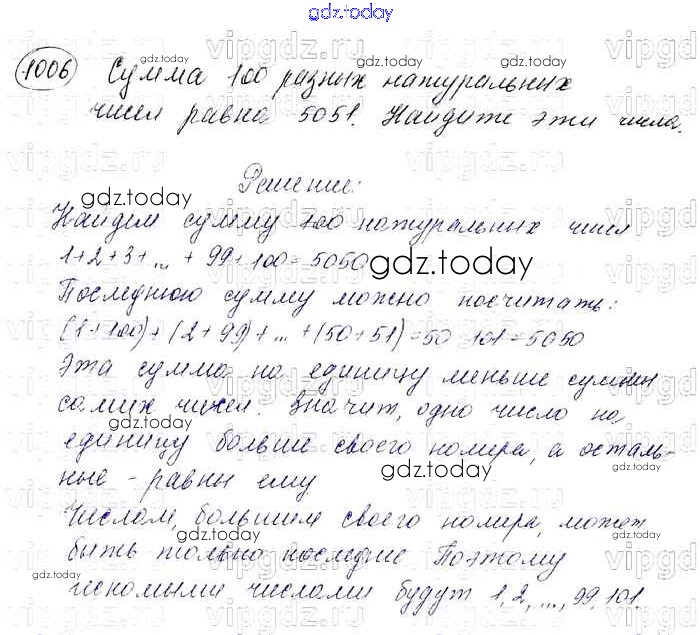 gdz.today
1006 Сумма 100 разных натуральных
чисел равна 5051. Найдите эти числа.
Решение:
gdz.today
Найдем сумму 100 натуральных чисел
1+2+3+...+99+100=5050
gdz.today
Последнюю сумму можно посчитать:
(1+100)+(2+99)+...+(50+51)=50·101=5050
Эта сумма на единицу меньше суммы
самих чисел. Значит, одно число на
единицу больше своего номера, а осталь-
ные - равны ему
gdz.today
Числом, большим своего номера, может
быть только последнее Поэтому
искомыми числами будут 1, 2, ..., 99, 101.
gdz.today
vipgdz.ru